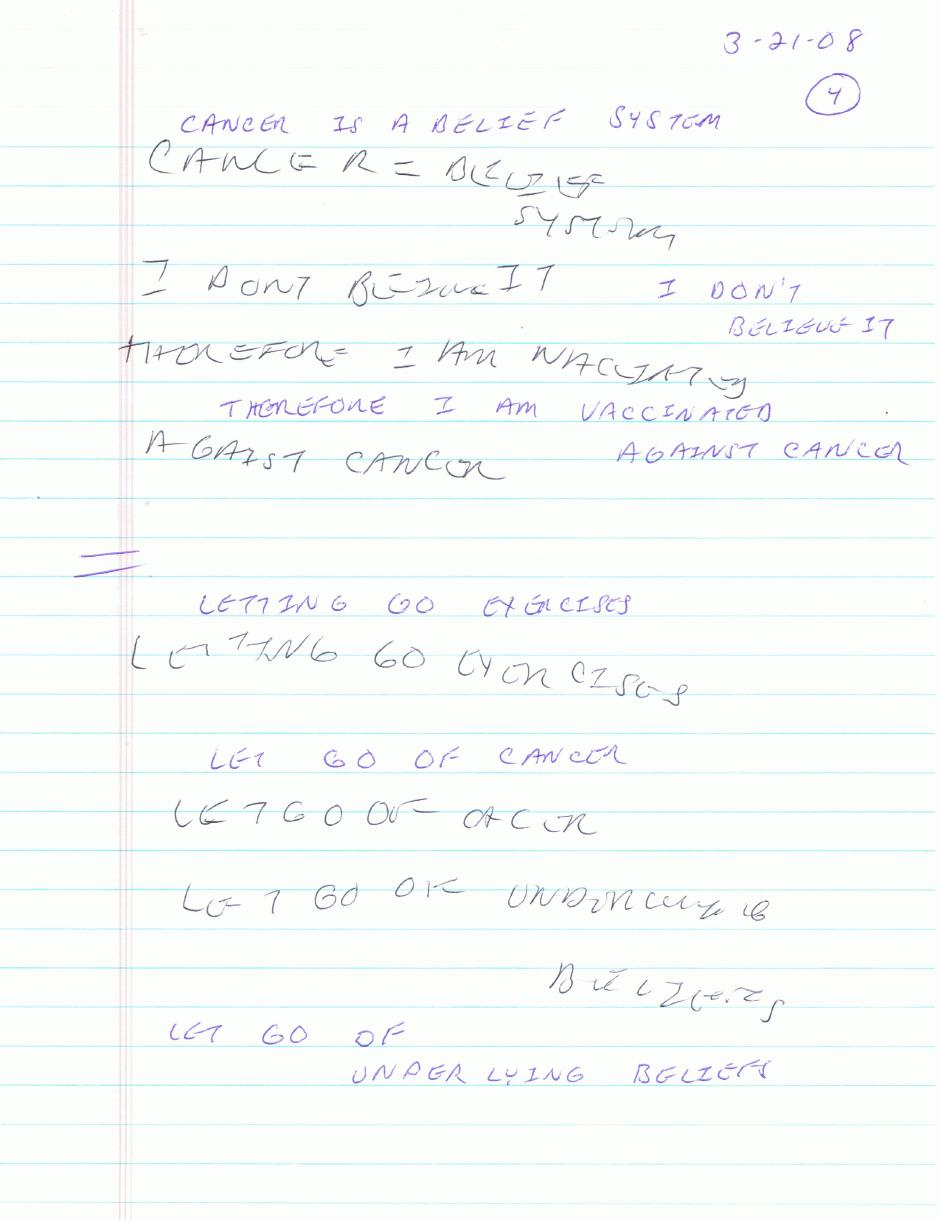 3-21-08
4
CANCER IS A BELIEF SYSTEM
CANCER = BELIEF
SYSTEM
I DONT BELIEVE IT
I DON'T
BELIEVE IT
THEREFORE I AM VACCINATED
THEREFORE I AM VACCINATED
AGAIST CANCER
AGAINST CANCER
LETTING GO EXERCISES
LETTING GO EXERCISES
LET GO OF CANCER
LET GO OF CACER
LET GO OF UNDERLYING
BELIEFS
LET GO OF
UNDERLYING BELIEFS